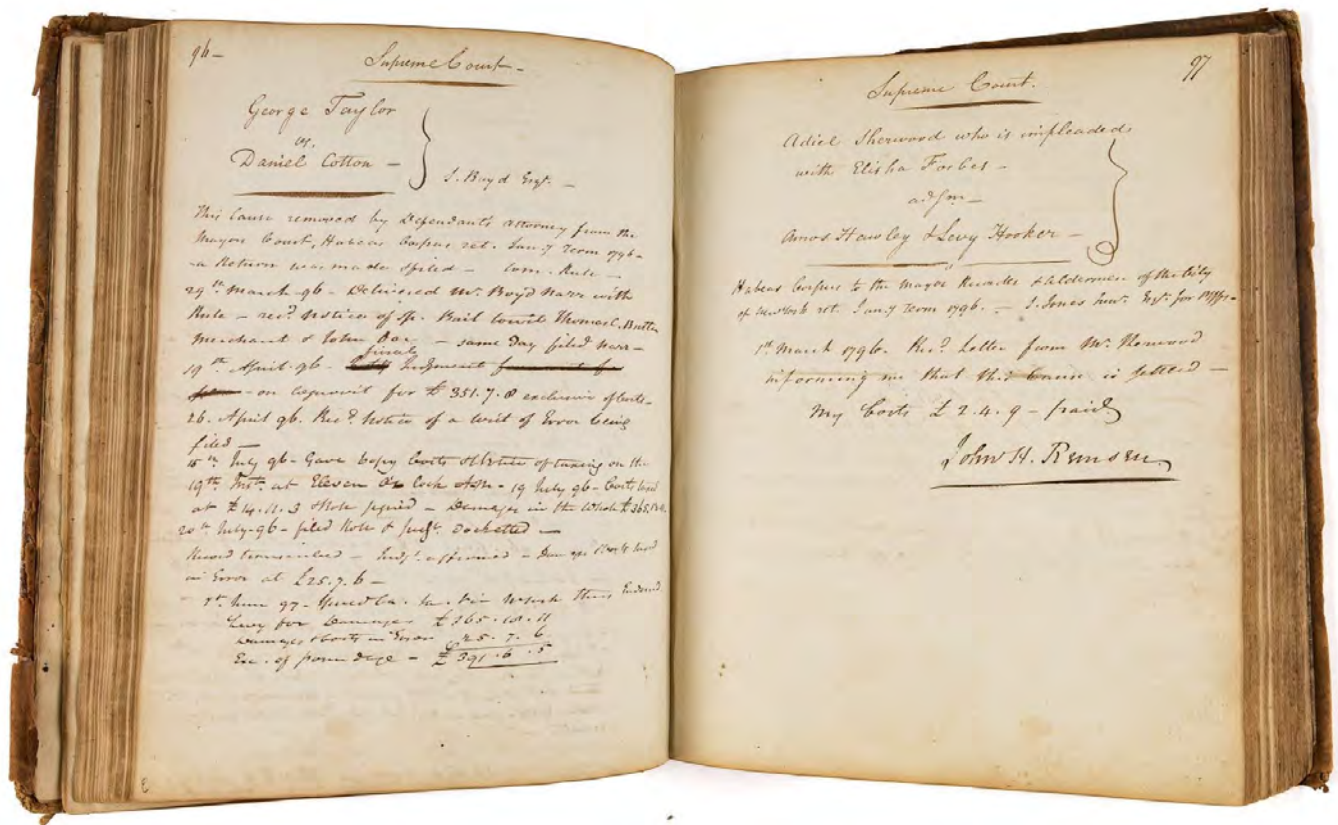 96 —
Supreme Court —
George Taylor
vs.
Daniel Cotton —
S. Boyd Esqr. —
This Cause removed by Defendants attorney from the
Mayors Court, Habeas Corpus ret. Jany Term 1796 —
a Return was made & filed — Com. Rule —
29th March 96 — Delivered Mr. Boyd Narr with
Rule — recd. Notice of sp. Bail to wit Thomas C. Butler
Merchant & John Doe — same Day filed Narr —
19th April 96 — final Judgment
on for £ 351.7.8 exclusive of Costs —
26. April 96. Recd. Notice of a writ of Error being
filed —
15th July 96 — Gave Copy Costs & Notice of taxing on the
19th. Inst. at Eleven O Clock — 19 July 96 — Costs taxed
at £ 14.11.3 & Role signed — Damages in the Whole £ 365.18.11
20th July 96 — filed Role & Judgt. Docketted —
Record transmitted — Judgt. affirmed — Damages & Costs taxed
in Error at £25.7.6 —
1st. June 97 — Issued Ca. Sa. Which thus Endorsed
Levy for Damages £ 365.18.11
Damages & Costs in Error £ 25.7.6
Exc. of poundage — £ 391.6.5
97
Supreme Court.
Adiel Sherwood who is impleaded
with Elisha Forbes —
ads'm —
Amos Hawley & Levy Hooker —
Habeas Corpus to the Mayor Recorder & Aldermen of the City
of New York ret. Jany Term 1796. — S. Jones Junr. Esqr. for Pltffs —
1st. March 1796. Recd. Letter from Mr.
informing me that this Cause is settled —
My Costs £ 2.4.9 — paid
John H. Remsen.